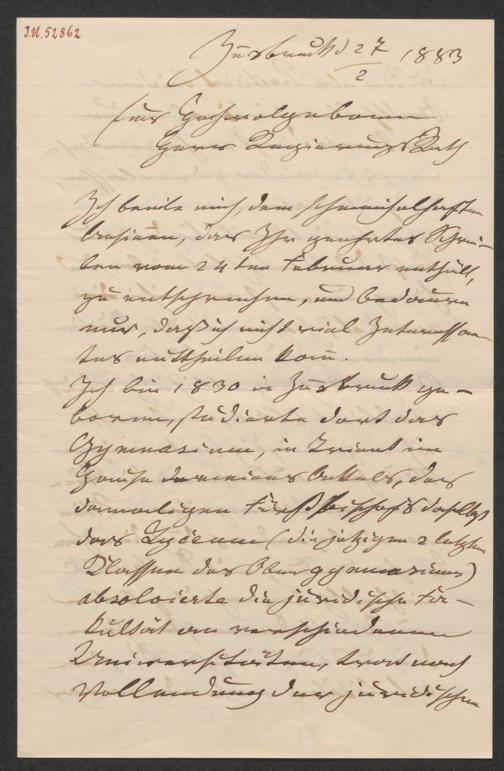 I.N. 52862
Innsbruck d 27/2 1883
Euer Hochwolgeboren
Herr Regierungs Rath
Ich beeile mich, dem schmeichelhaften
Ansinnen, das Ihr geehrtes Schrei-
ben vom 24ten Februar enthält,
zu entsprechen, und bedaure
nur, daß ich nicht viel Interessan-
tes mittheilen kann.
Ich bin 1830 in Innsbruck ge-
boren, studierte dort das
Gymnasium, in Trient im
Hause meines Onkels, des
damaligen Fürstbischofs daselbst
das Lyceum (die jetzigen 2 letzten
Klassen des Obergymnasiums)
absolvierte die juridische Fa-
kultät an verschiedenen
Universitäten, trat nach
Vollendung der juridischen